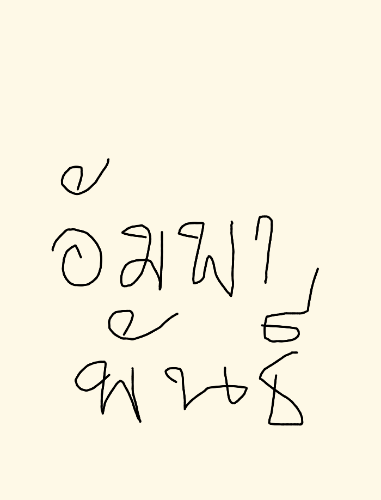 อัมพา
พันธุ์